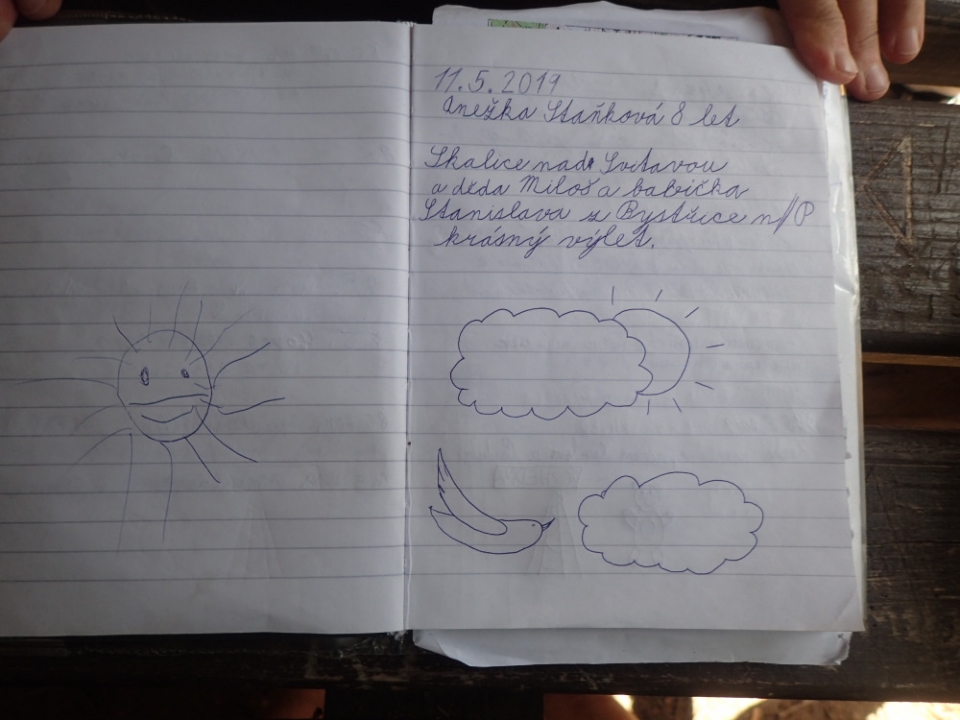 11.5.2019
Anežka Staňková 8 let
Skalice nad Svitavou
a děda Miloš a babička
Stanislava z Bystřice n/P
krásný výlet.